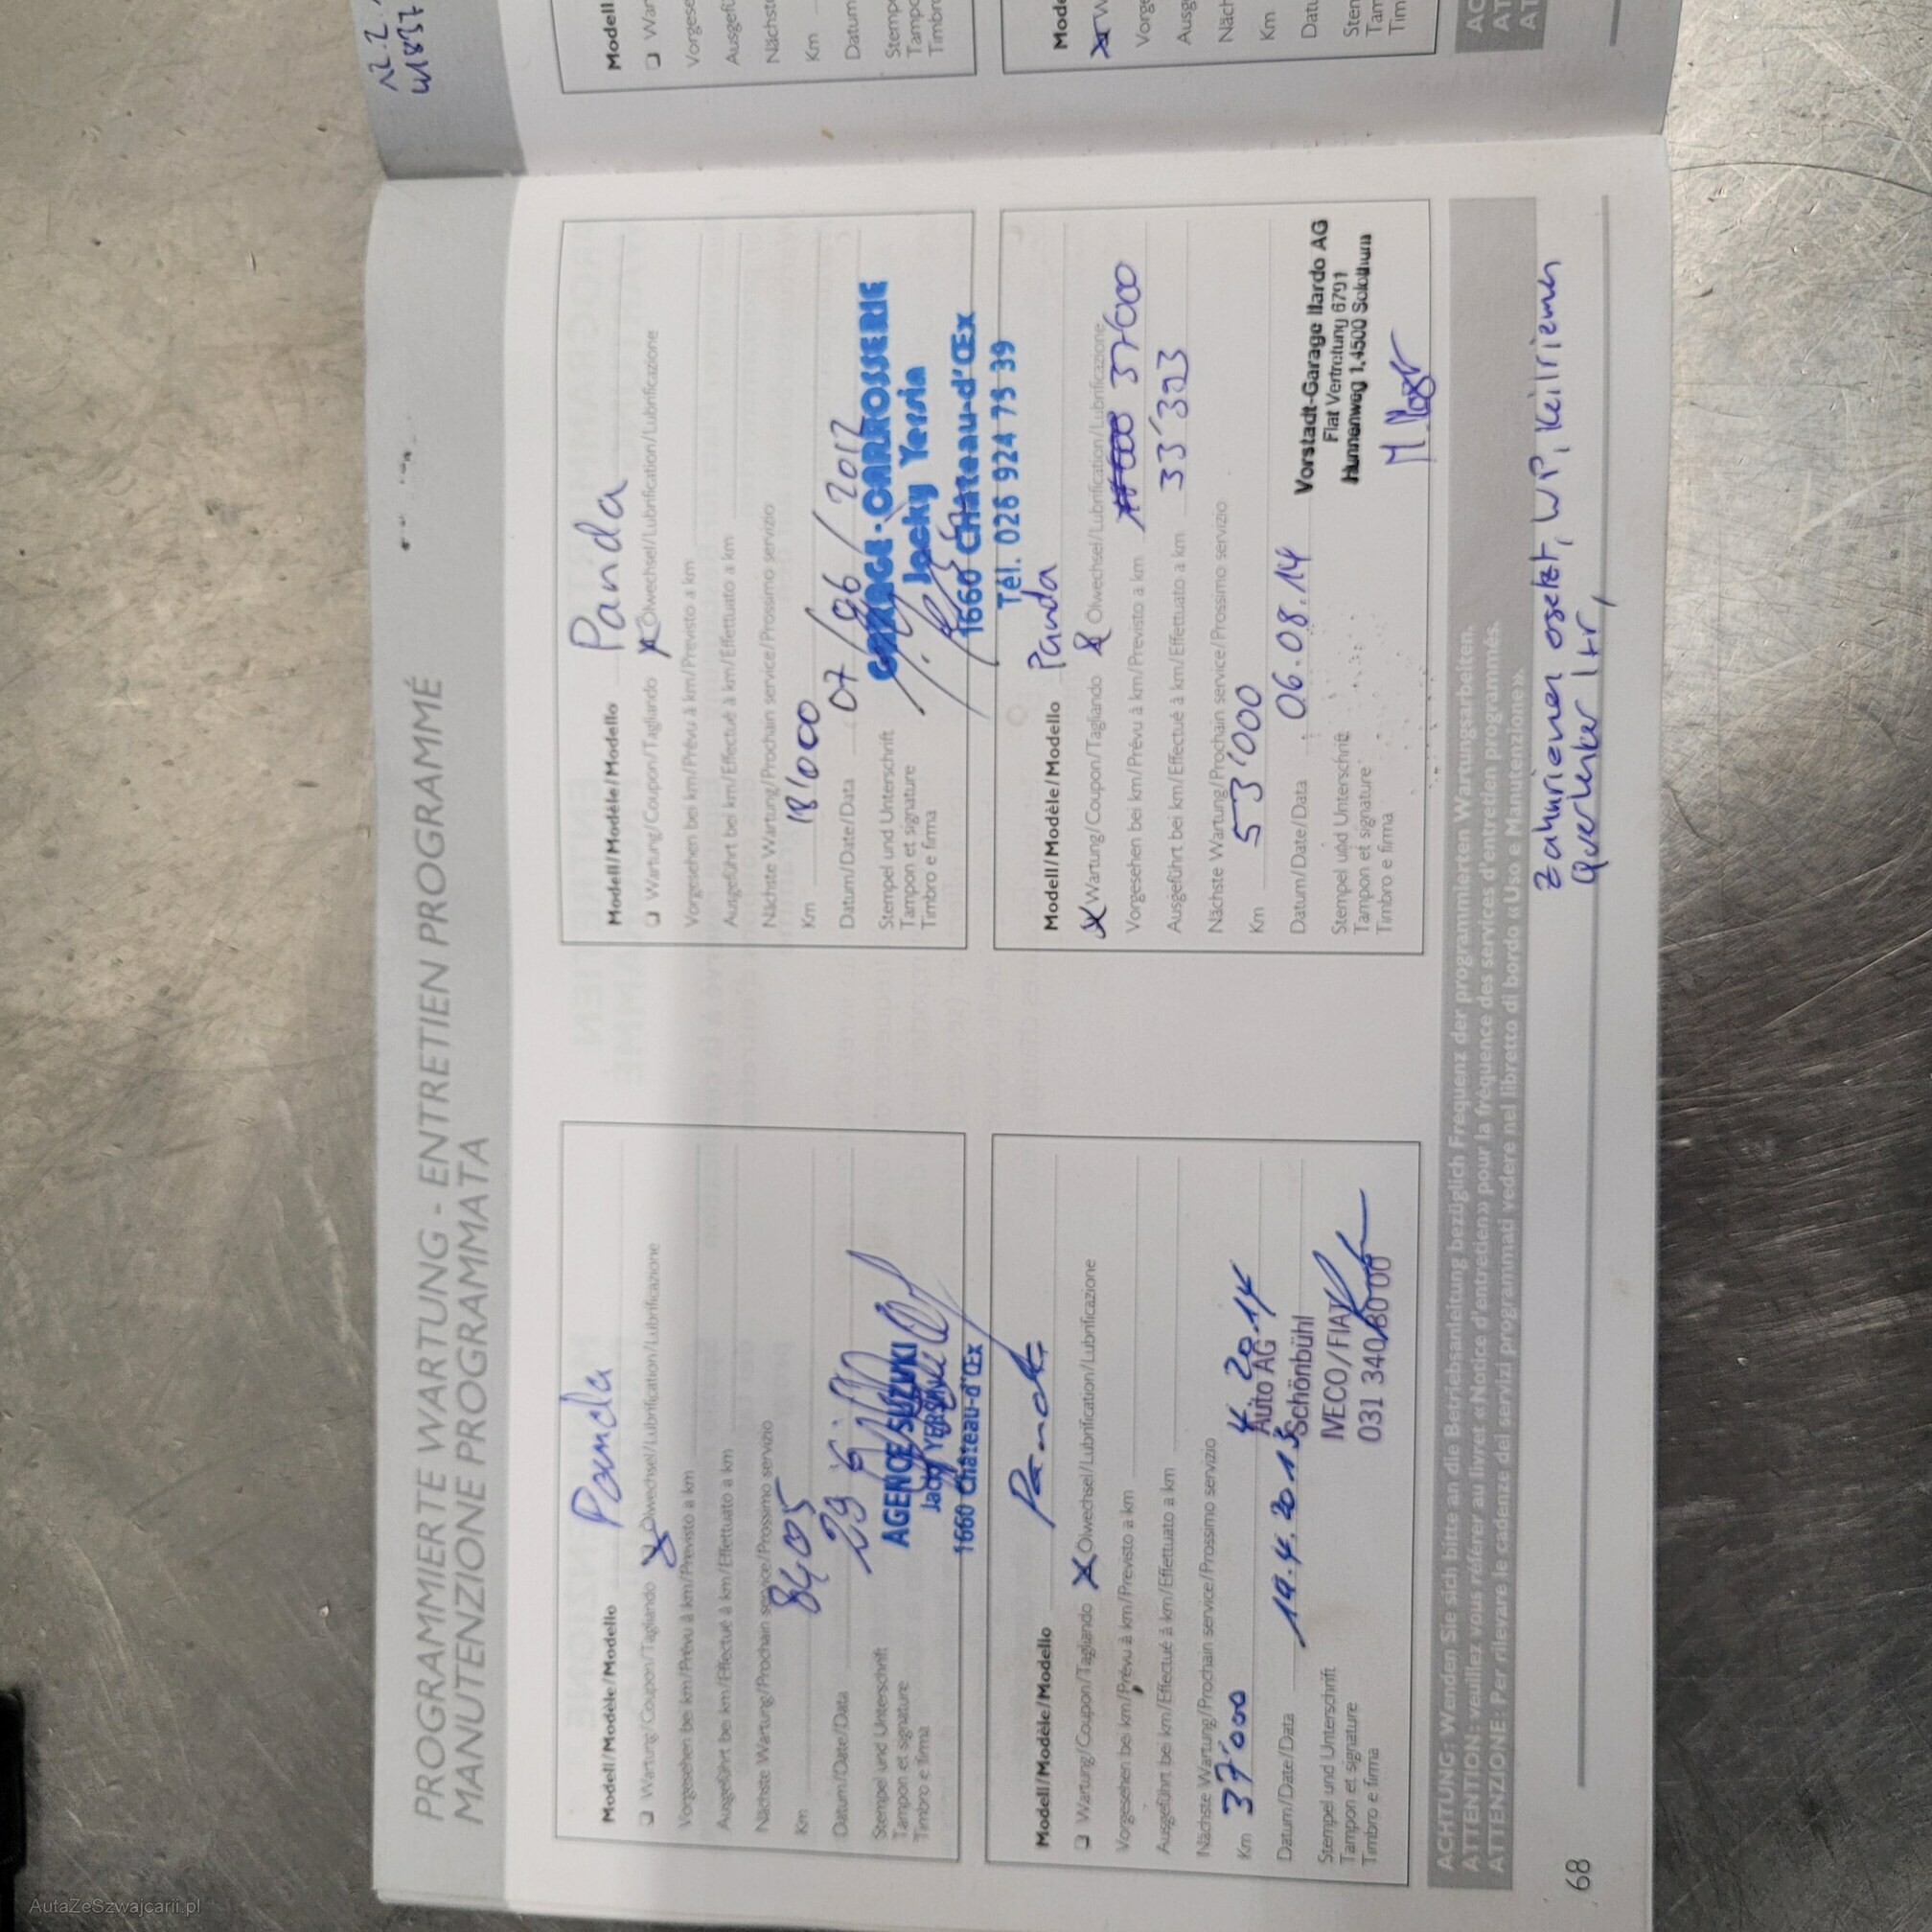 PROGRAMMIERTE WARTUNG - ENTRETIEN PROGRAMMÉ
MANUTENZIONE PROGRAMMATA
Modell/Modèle/Modello Panda
❑ Wartung/Coupon/Tagliando X Ölwechsel/Lubrification/Lubrificazione
Vorgesehen bei km/Prévu à km/Previsto a km
Ausgeführt bei km/Effectué à km/Effettuato a km
Nächste Wartung/Prochain service/Prossimo servizio
Km 8405
Datum/Date/Data 29
Stempel und Unterschrift
Tampon et signature
Timbro e firma
AGENCE SUZUKI
Jacky YERSIN
1660 Château-d'Œx
Modell/Modèle/Modello Panda
❑ Wartung/Coupon/Tagliando X Ölwechsel/Lubrification/Lubrificazione
Vorgesehen bei km/Prévu à km/Previsto a km
Ausgeführt bei km/Effectué à km/Effettuato a km
Nächste Wartung/Prochain service/Prossimo servizio
Km 37'000 4.2014
Datum/Date/Data 19.4.2013
Stempel und Unterschrift
Tampon et signature
Timbro e firma
Auto AG
Schönbühl
IVECO/FIAT
031 340 80 00
Modell/Modèle/Modello Panda
❑ Wartung/Coupon/Tagliando X Ölwechsel/Lubrification/Lubrificazione
Vorgesehen bei km/Prévu à km/Previsto a km
Ausgeführt bei km/Effectué à km/Effettuato a km
Nächste Wartung/Prochain service/Prossimo servizio
Km 18'000
Datum/Date/Data 07/06/2012
Stempel und Unterschrift
Tampon et signature
Timbro e firma
GARAGE-CARROSSERIE
Jacky Yersin
1660 Château-d'Œx
Tél. 026 924 75 39
Modell/Modèle/Modello Panda
X Wartung/Coupon/Tagliando X Ölwechsel/Lubrification/Lubrificazione
Vorgesehen bei km/Prévu à km/Previsto a km 37'000
Ausgeführt bei km/Effectué à km/Effettuato a km 33'303
Nächste Wartung/Prochain service/Prossimo servizio
Km 53'000
Datum/Date/Data 06.08.14
Stempel und Unterschrift
Tampon et signature
Timbro e firma
Vorstadt-Garage Ilardo AG
Fiat Vertretung 6701
Hunnenweg 1, 4500 Solothurn
ACHTUNG: Wenden Sie sich bitte an die Betriebsanleitung bezüglich Frequenz der programmierten Wartungsarbeiten.
ATTENTION: veuillez vous référer au livret «Notice d'entretien» pour la fréquence des services d'entretien programmés.
ATTENZIONE: Per rilevare le cadenze dei servizi programmati vedere nel libretto di bordo «Uso e Manutenzione».
68
Zahnriemen ersetzt, WP, Keilriemen
Querlenker
12.2.
Modell
❑ War
Vorgese
Ausgefü
Nächst
Km
Datum
Stemp
Tampo
Timbro
Mode
X W
Vorge
Ausg
Näch
Km
Datu
Sten
Tam
Tim
AC
AT
AT
AutaZeSzwajcarii.pl